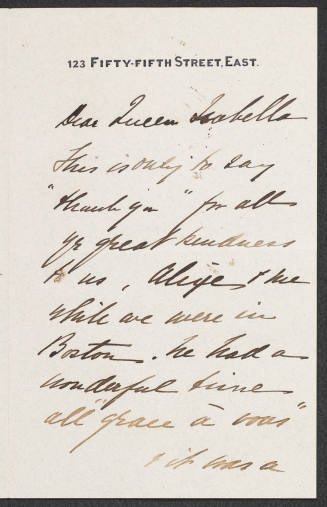 123 FIFTY-FIFTH STREET, EAST.
Dear Queen Isabella
This is only to say
"thank you" for all
yr great kindness
to us, Alice & me
while we were in
Boston. We had a
wonderful time
all "grace à vous"
& it was a